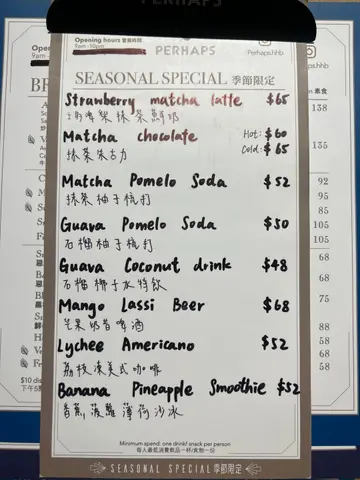 PERHAPS
Opening hours 營業時間
9am - 10pm
PERHAPS
Perhaps.hhb
SEASONAL SPECIAL 季節限定
Strawberry matcha latte $65
士多啤梨抹茶鮮奶
Matcha chocolate Hot: $60
Cold: $65
抹茶朱古力
Matcha Pomelo Soda $52
抹茶柚子梳打
Guava Pomelo Soda $50
石榴柚子梳打
Guava Coconut drink $48
石榴椰子水特飲
Mango Lassi Beer $68
芒果奶昔啤酒
Lychee Americano $52
荔枝凍美式咖啡
Banana Pineapple Smoothie $52
香蕉菠蘿薄荷沙冰
Minimum spend: one drink/ snack per person
每人最低消費飲品一杯/食物一份
SEASONAL SPECIAL 季節限定
haps.hhb
素食
138
135
92
95
85
105
105
68
68
75
88
58
68
58
$10